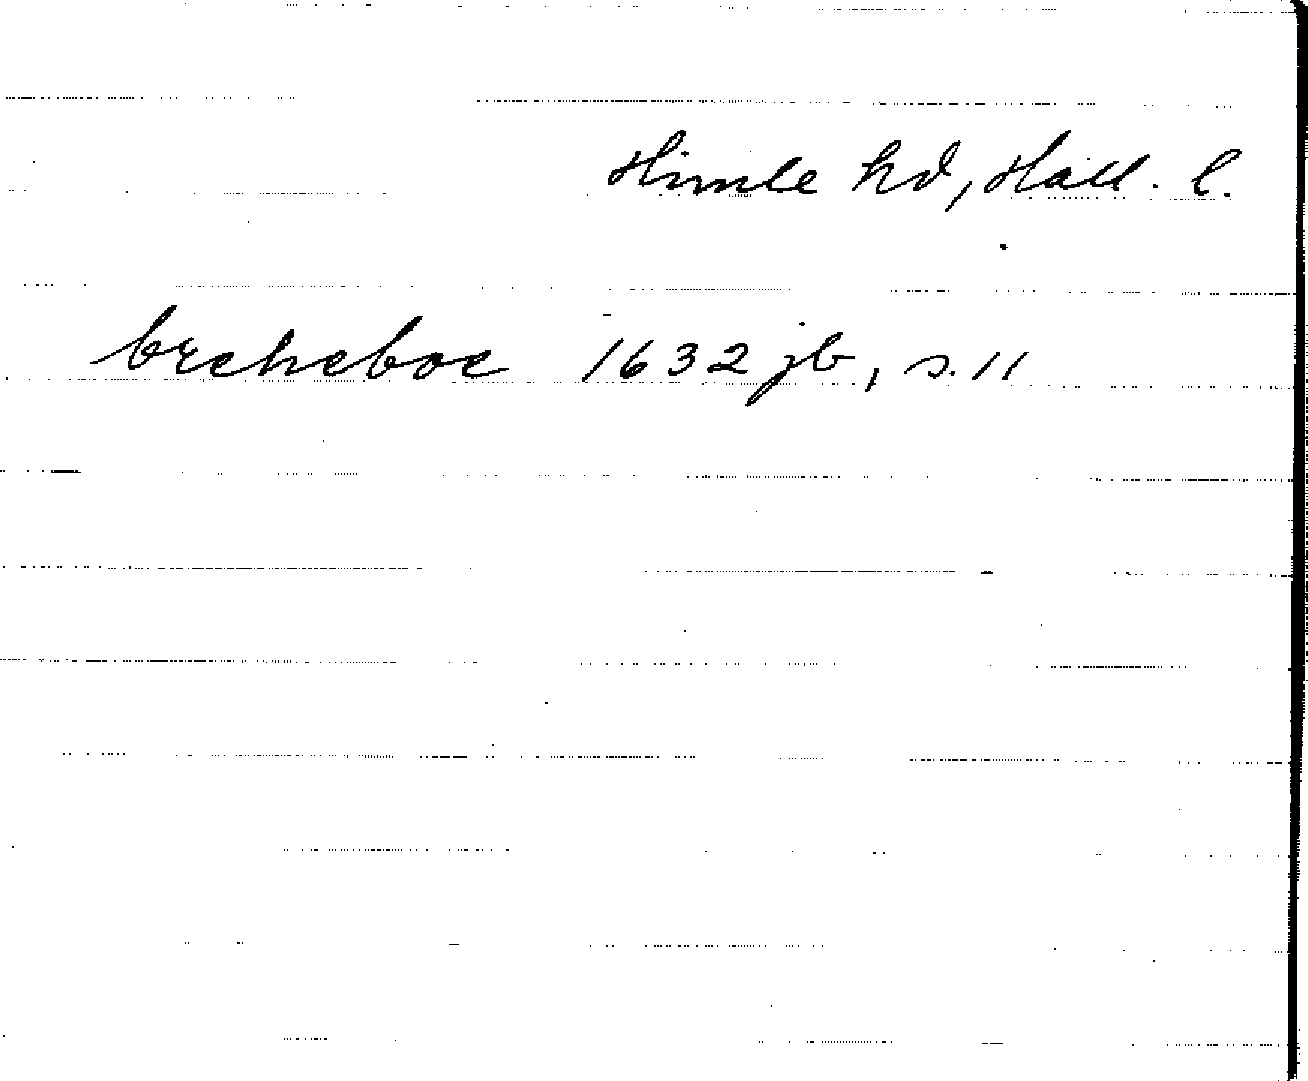 Himle hd, Hall. l.
brcheboe 1632 jb, s. 11